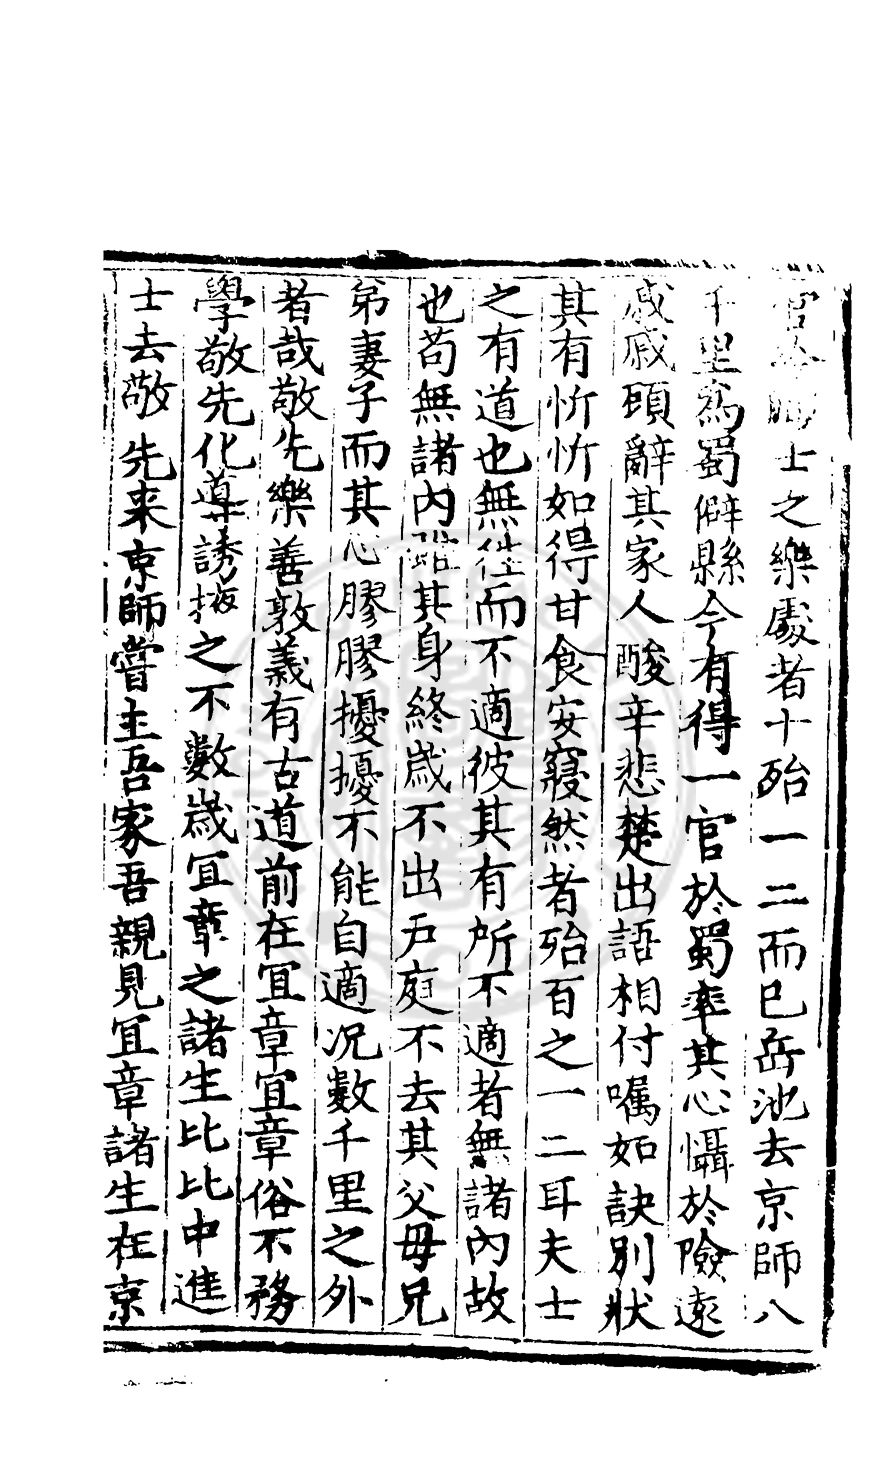 官於蜀士之樂處者十殆一二而已岳池去京師八
千里爲蜀僻縣今有得一官於蜀率其心懾於險遠
戚戚頋辭其家人酸辛悲楚出語相付囑如訣別狀
其有忻忻如得甘食安寢然者殆百之一二耳夫士
之有道也無往而不適彼其有所不適者無諸內故
也苟無諸內雖其身終歲不出戶庭不去其父母兄
弟妻子而其心膠膠擾擾不能自適况數千里之外
者哉敬先樂善敦義有古道前在宜章宜章俗不務
學敬先化導誘掖之不數歲宜章之諸生比比中進
士去敬先来京師嘗主吾家吾親見宜章諸生在京